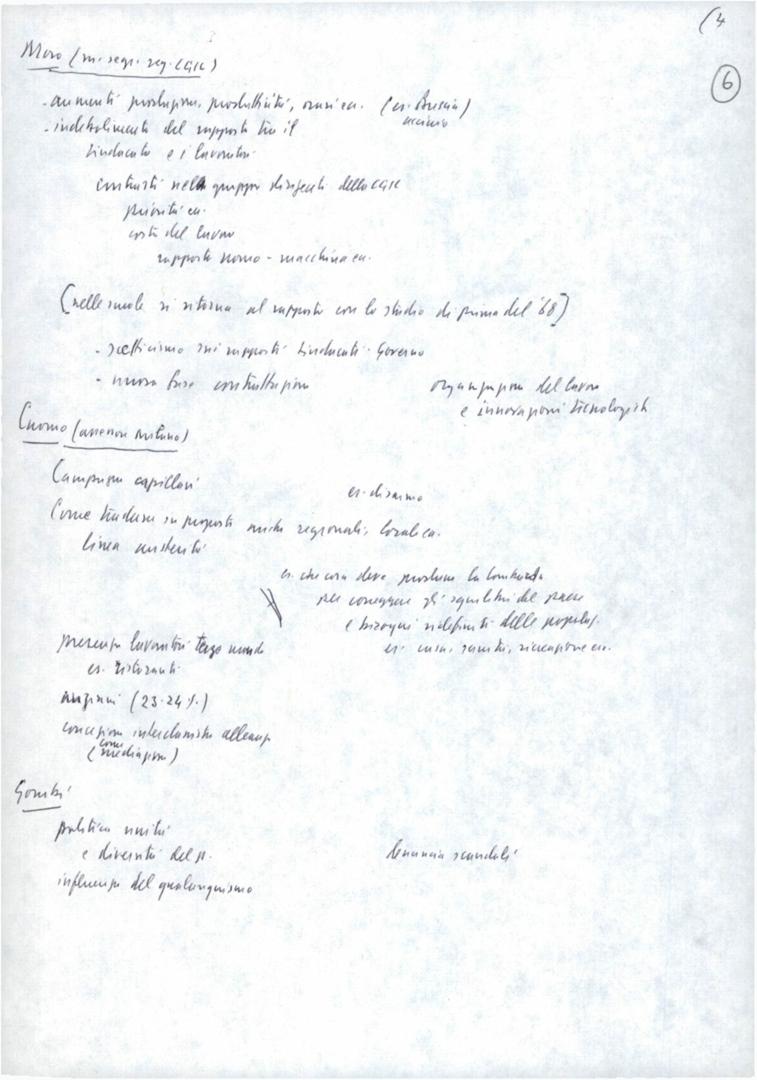 (4
6
Moro (m. segr. reg. CGIL)
- aumenti produzione, produttività, orari ecc. (es. Brescia)
acciaio
- indebolimenti del rapporto tra il
sindacato e i lavoratori
contrasti nel gruppo dirigenti della CGIL
priorità ecc.
costo del lavoro
rapporto uomo - macchina ecc.
(nelle scuole si ritorna al rapporto con lo studio di prima del '68)
- scetticismo sui rapporti sindacati - Governo
- nuova fase contrattazione
organizzazione del lavoro
e innovazioni tecnologich
Cuomo (assessore Milano)
Campagne capillari
es. disarmo
Come tradurre in proposte anche regionali, locali ecc.
linea austerità
es. che cosa deve produrre la Lombardia
per correggere gli squilibri del paese
e bisogni ridefiniti delle popolaz.
es. casa, sanità, ricreazione ecc.
presenza lavoratori terzo mondo
es. ristoranti
anziani (23-24%)
concezione interclassista alleanze
(come mediazione)
politica unità
e diversità del p.
denuncia scandali
influenza del qualunquismo